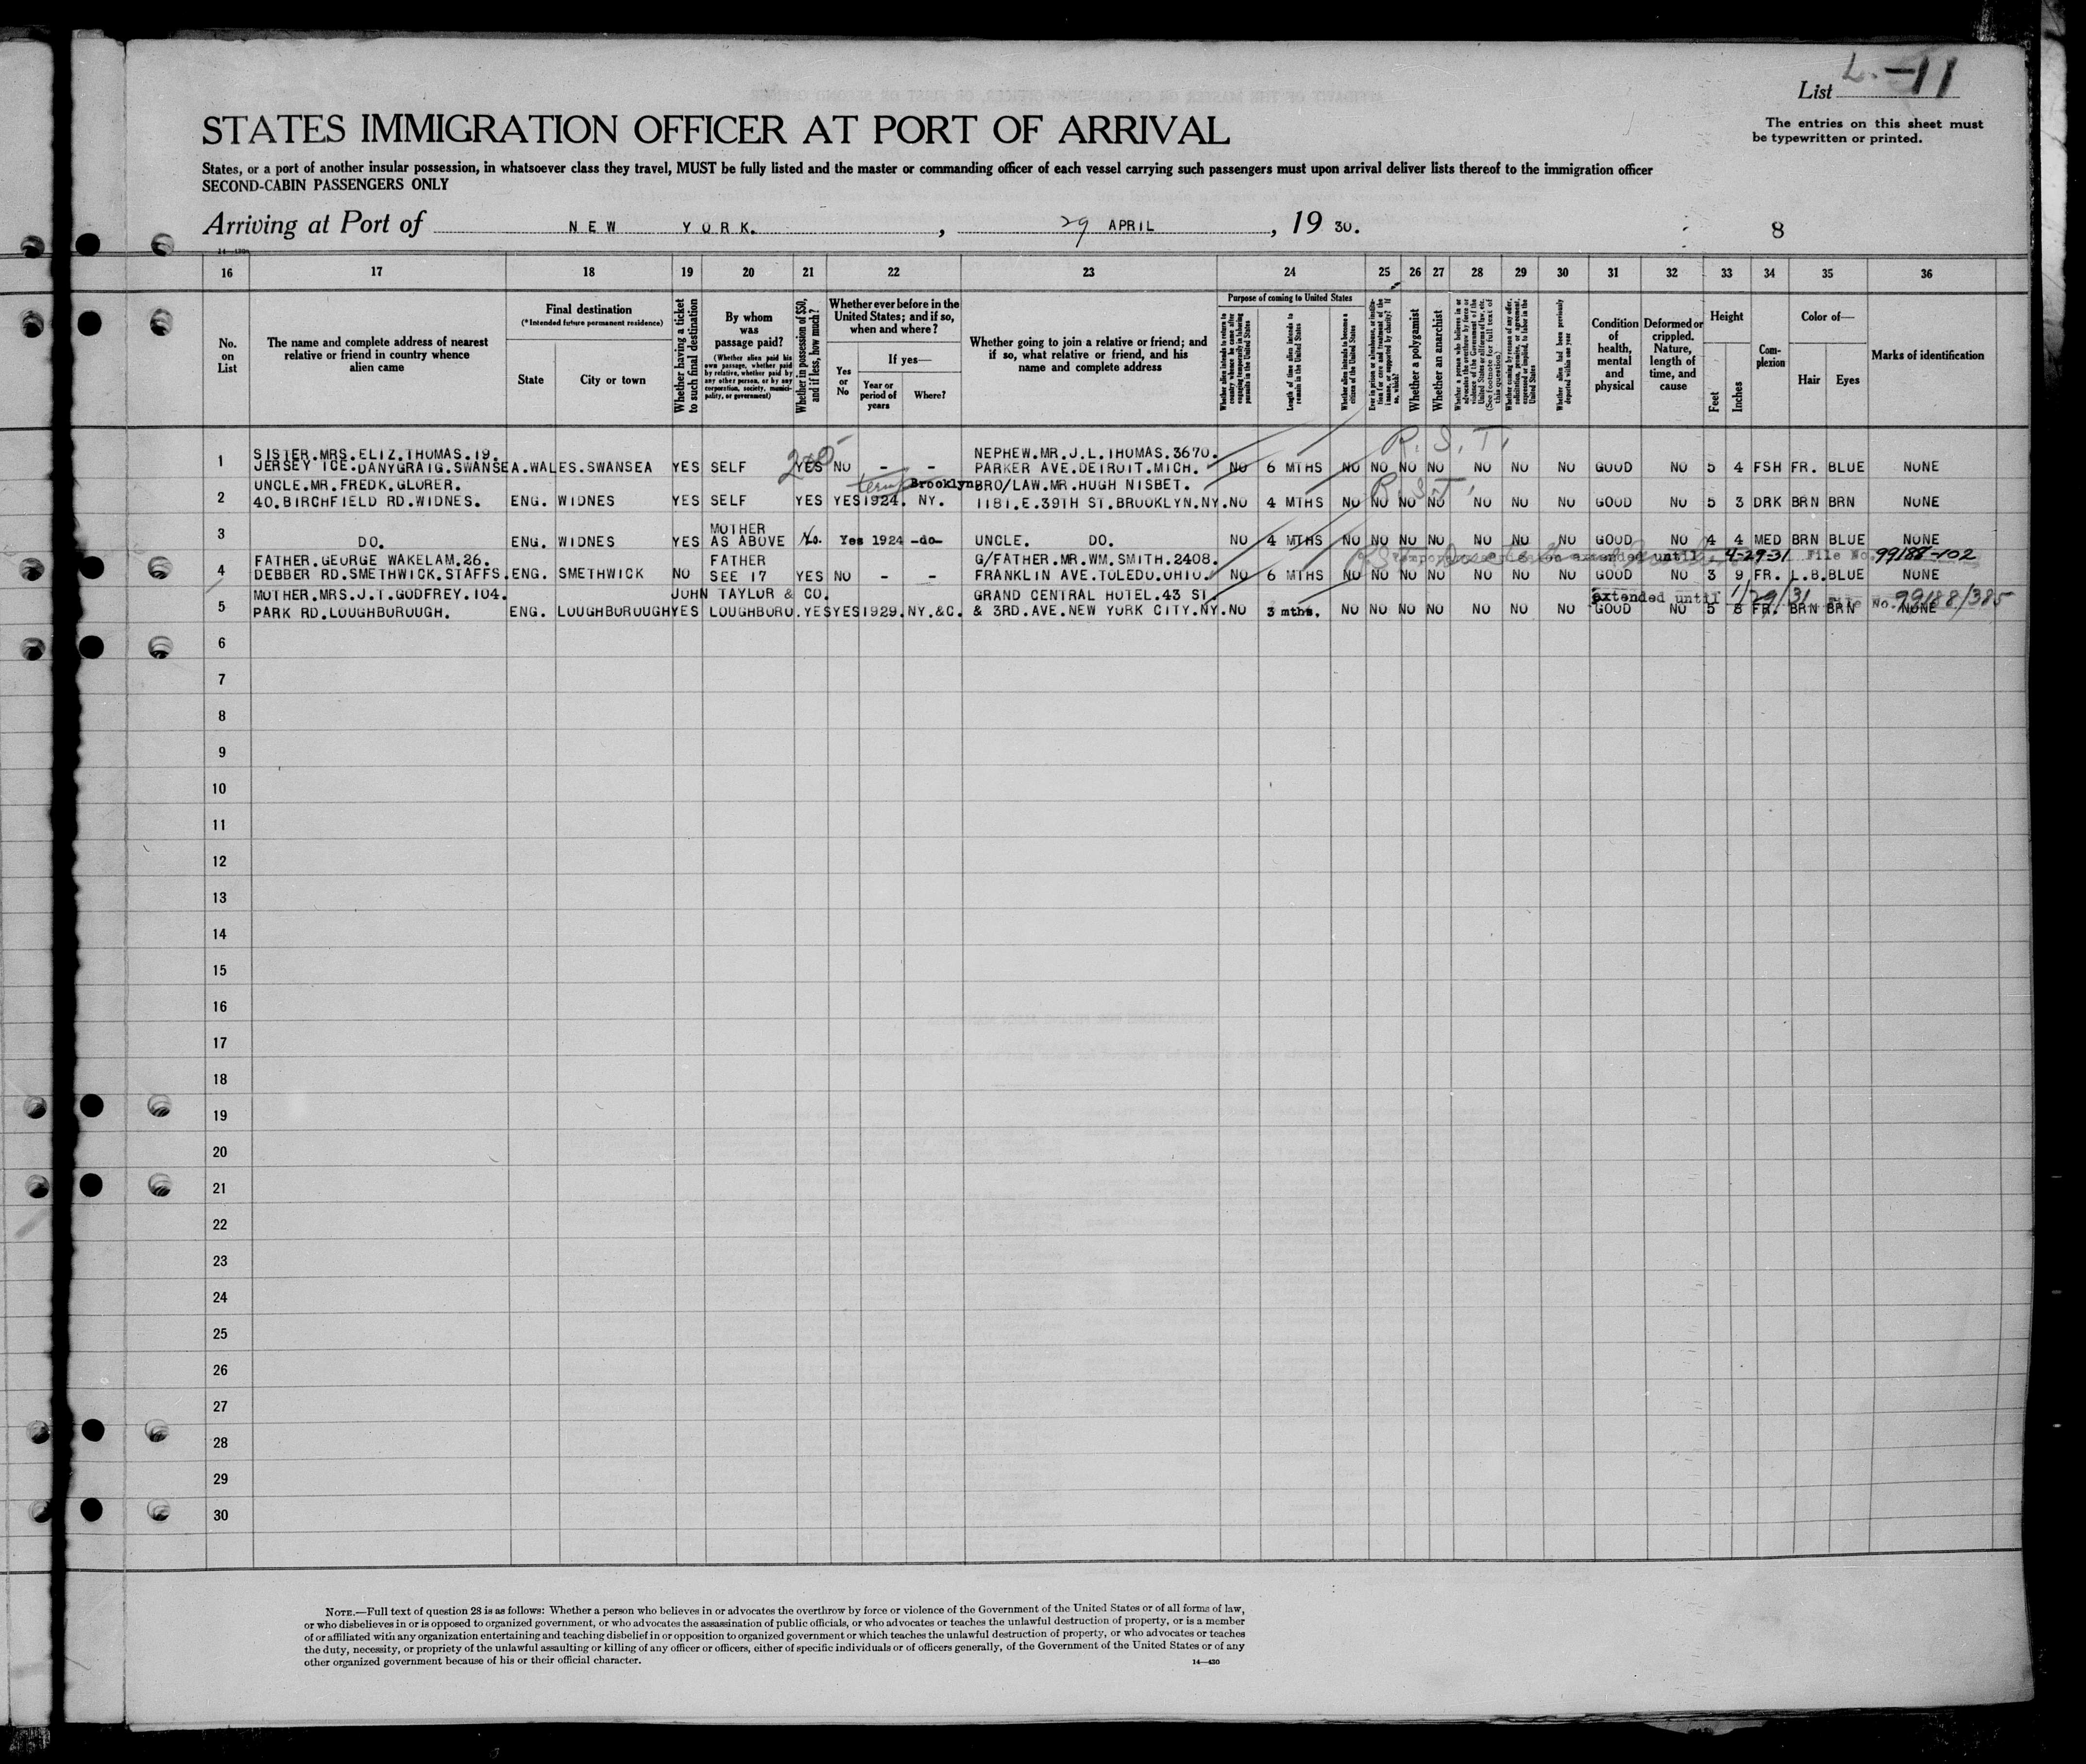 L.-11
List
The entries on this sheet must
be typewritten or printed.
STATES IMMIGRATION OFFICER AT PORT OF ARRIVAL
States, or a port of another insular possession, in whatsoever class they travel, MUST be fully listed and the master or commanding officer of each vessel carrying such passengers must upon arrival deliver lists thereof to the immigration officer
SECOND-CABIN PASSENGERS ONLY
Arriving at Port of NEW YORK. , 29 APRIL , 19 30.
8
16 17 18 19 20 21 22 23 24 25 26 27 28 29 30 31 32 33 34 35 36
No. on List
The name and complete address of nearest relative or friend in country whence alien came
Final destination
(*Intended future permanent residence)
State
City or town
Whether having a ticket to such final destination
By whom was passage paid?
(Whether alien paid his own passage, whether paid by relative, whether paid by any other person, or by any corporation, society, municipality, or government)
Whether in possession of $50, and if less, how much?
Whether ever before in the United States; and if so, when and where?
Yes or No
If yes—
Year or period of years
Where?
Whether going to join a relative or friend; and if so, what relative or friend, and his name and complete address
Purpose of coming to United States
Length of time alien intends to remain in the United States
Whether alien intends to become a citizen of the United States
Whether a polygamist
Whether an anarchist
Whether alien had been previously deported within one year
Condition of health, mental and physical
Deformed or crippled. Nature, length of time, and cause
Height
Feet
Inches
Complexion
Color of—
Hair
Eyes
Marks of identification
R.S.T.
200
SISTER.MRS.ELIZ.THOMAS.19.
NEPHEW.MR.J.L.THOMAS.3670.
1 JERSEY TCE.DANYGRAIG.SWANSEA.WALES.SWANSEA YES SELF YES NO - - PARKER AVE.DETROIT.MICH. NO 6 MTHS NO NO NO NO NO NO NO GOOD NO 5 4 FSH FR. BLUE NONE
UNCLE.MR.FREDK.GLORER. temp Brooklyn BRO/LAW.MR.HUGH NISBET. R.S.T.
2 40.BIRCHFIELD RD.WIDNES. ENG. WIDNES YES SELF YES YES 1924. NY. 1181.E.39TH ST.BROOKLYN.NY. NO 4 MTHS NO NO NO NO NO NO NO GOOD NO 5 3 DRK BRN BRN NONE
MOTHER
3 DO. ENG. WIDNES YES AS ABOVE No. Yes 1924 -do- UNCLE. DO. NO 4 MTHS NO NO NO NO NO NO NO GOOD NO 4 4 MED BRN BLUE NONE
FATHER.GEORGE WAKELAM.26. FATHER G/FATHER.MR.WM.SMITH.2408. extended until 4-29-31 File No. 99188-102
4 DEBBER RD.SMETHWICK.STAFFS. ENG. SMETHWICK NO SEE 17 YES NO - - FRANKLIN AVE.TOLEDO.OHIO. NO 6 MTHS NO NO NO NO NO NO NO GOOD NO 3 9 FR. L.B. BLUE NONE
MOTHER.MRS.J.T.GODFREY.104. JOHN TAYLOR & CO. GRAND CENTRAL HOTEL.43 ST. extended until 1/29/31 File No. 99188/385
5 PARK RD.LOUGHBOROUGH. ENG. LOUGHBOROUGH YES LOUGHBORO. YES YES 1929. NY.&C. & 3RD.AVE.NEW YORK CITY.NY. NO 3 mths. NO NO NO NO NO NO NO GOOD NO 5 8 FR. BRN BRN NONE
6
7
8
9
10
11
12
13
14
15
16
17
18
19
20
21
22
23
24
25
26
27
28
29
30
NOTE.—Full text of question 28 is as follows: Whether a person who believes in or advocates the overthrow by force or violence of the Government of the United States or of all forms of law,
or who disbelieves in or is opposed to organized government, or who advocates the assassination of public officials, or who advocates or teaches the unlawful destruction of property, or is a member
of or affiliated with any organization entertaining and teaching disbelief in or opposition to organized government or which teaches the unlawful destruction of property, or who advocates or teaches
the duty, necessity, or propriety of the unlawful assaulting or killing of any officer or officers, either of specific individuals or of officers generally, of the Government of the United States or of any
other organized government because of his or their official character.
14—430